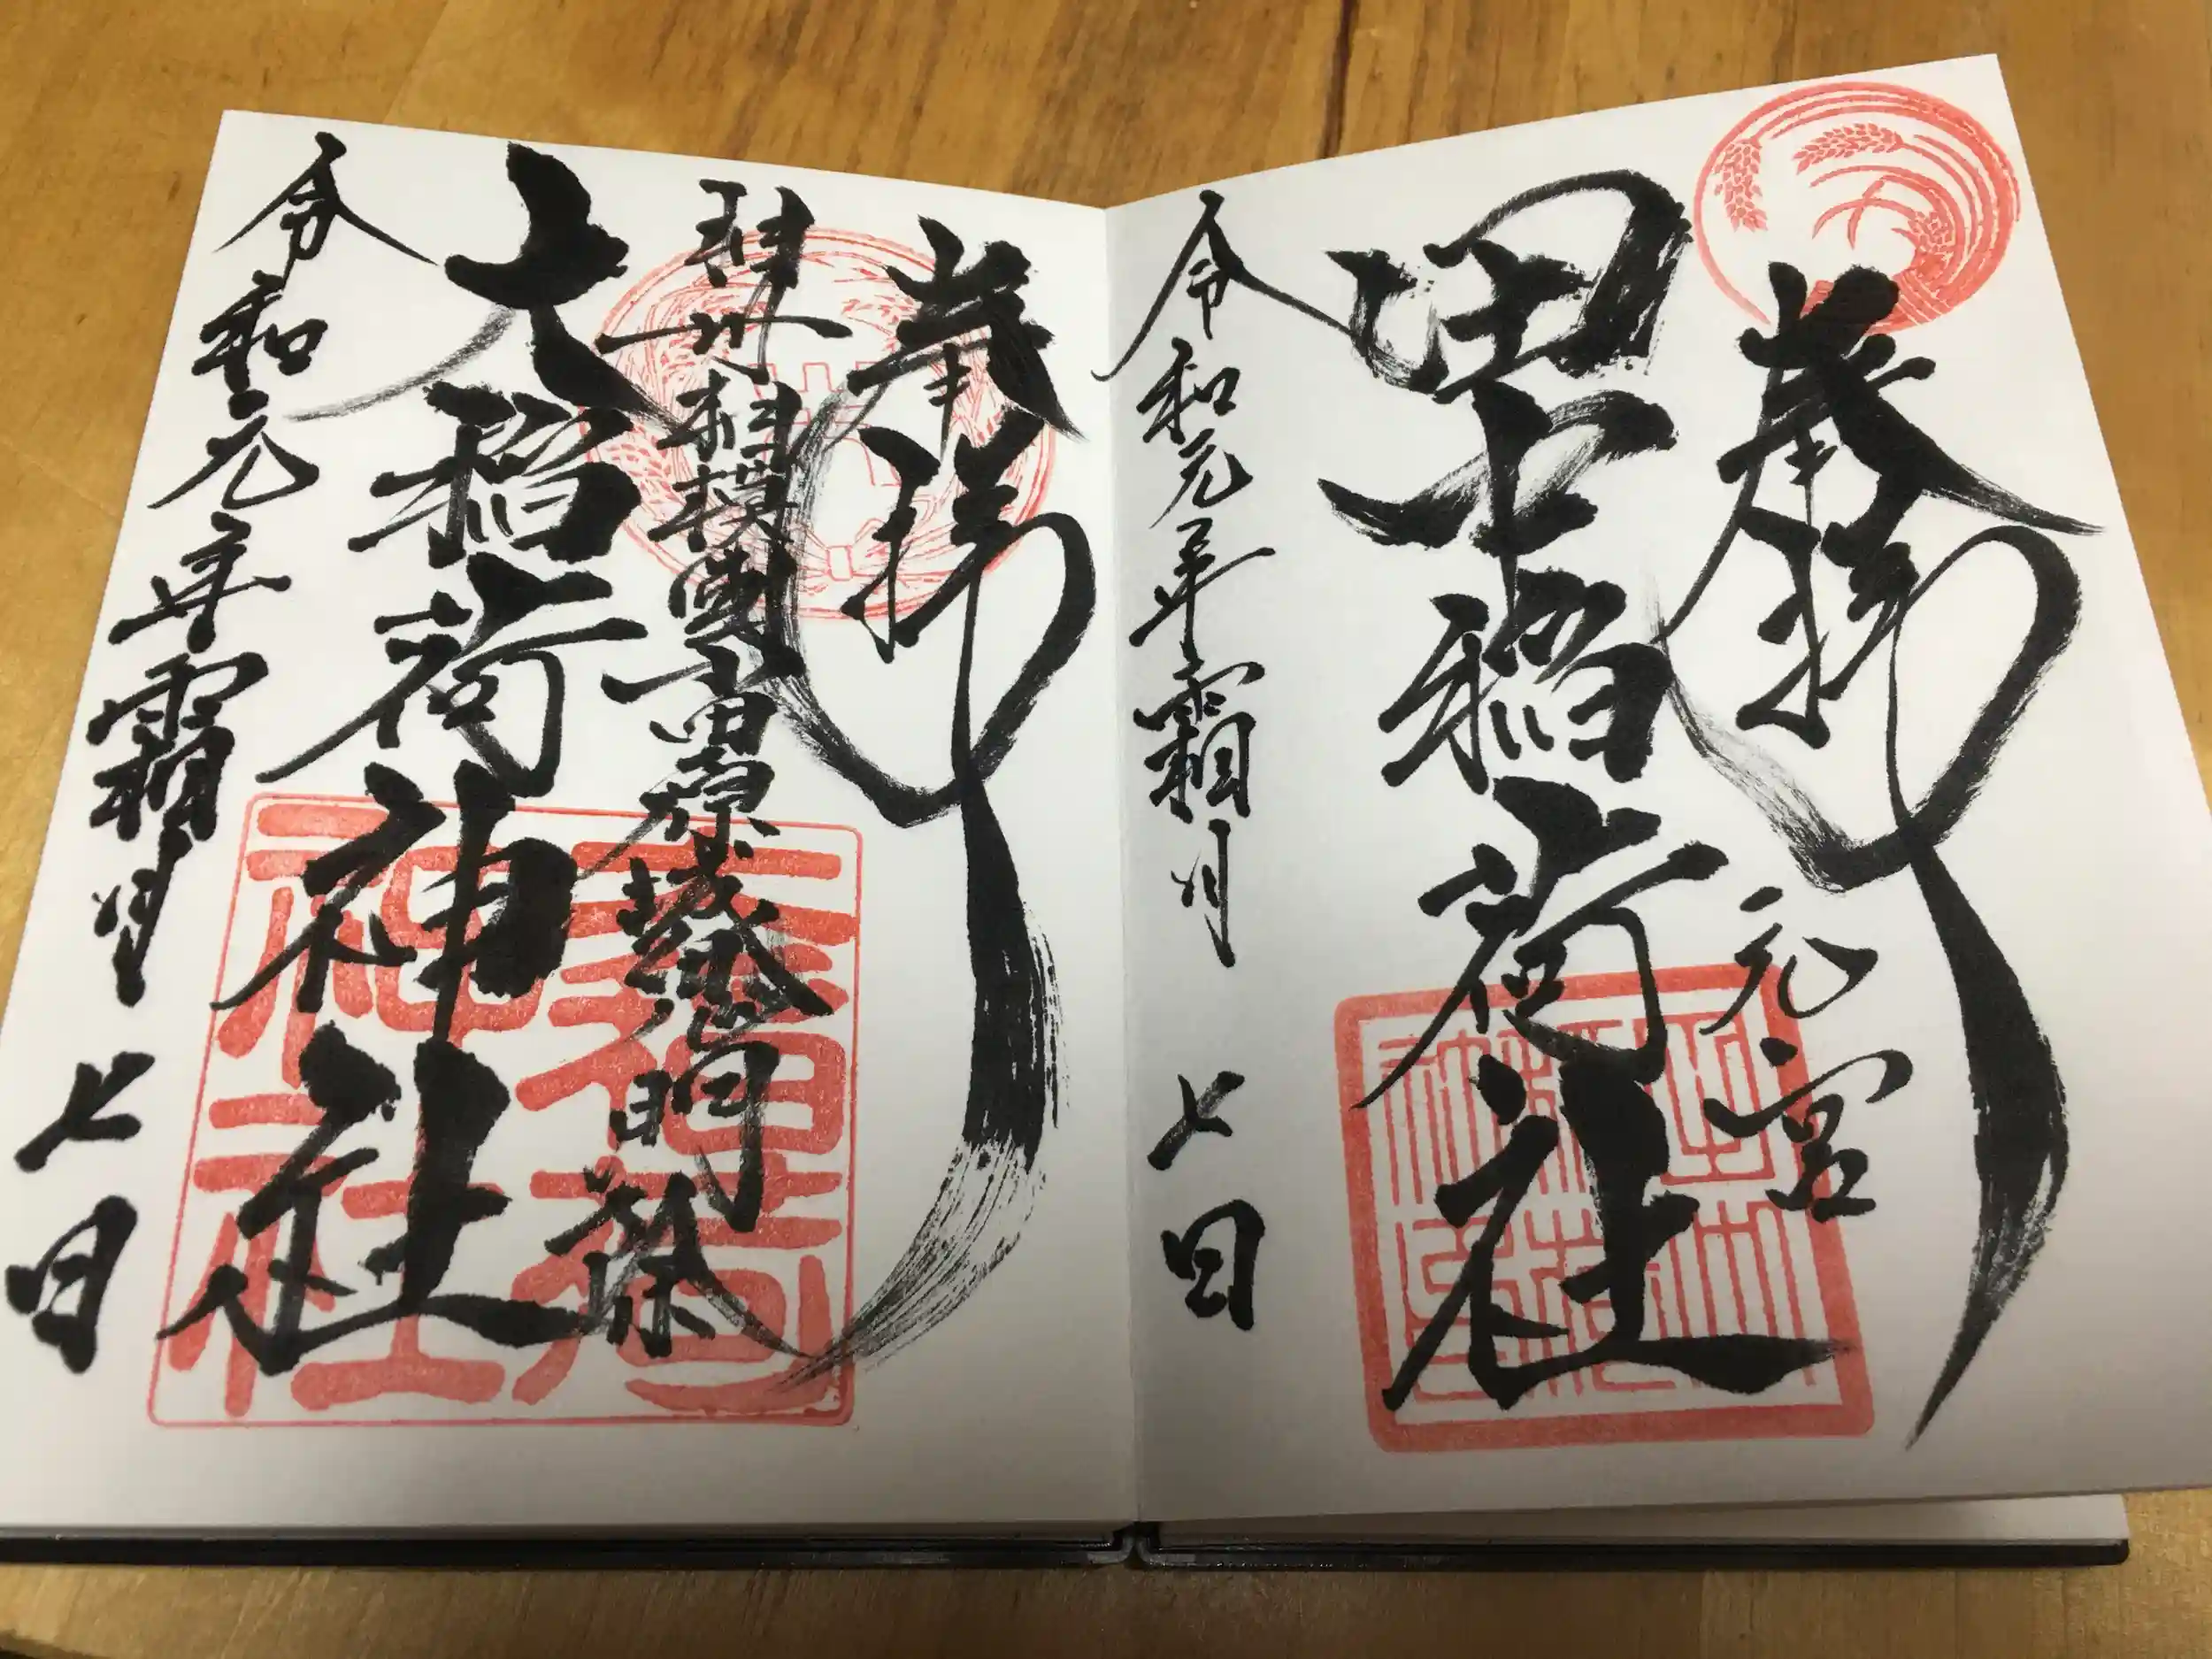 奉拝
元宮
田中稲荷社
令和元年霜月七日
奉拝
相州相模國小田原城
大稲荷神社
大稲荷
神社
令和元年霜月七日